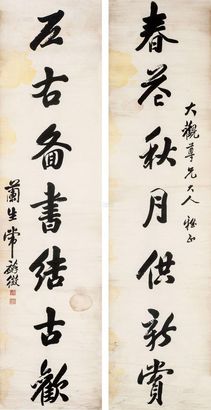 春花秋月供新賞
大觀尊兄大人雅正
左右啚書結古歡
蘭生常